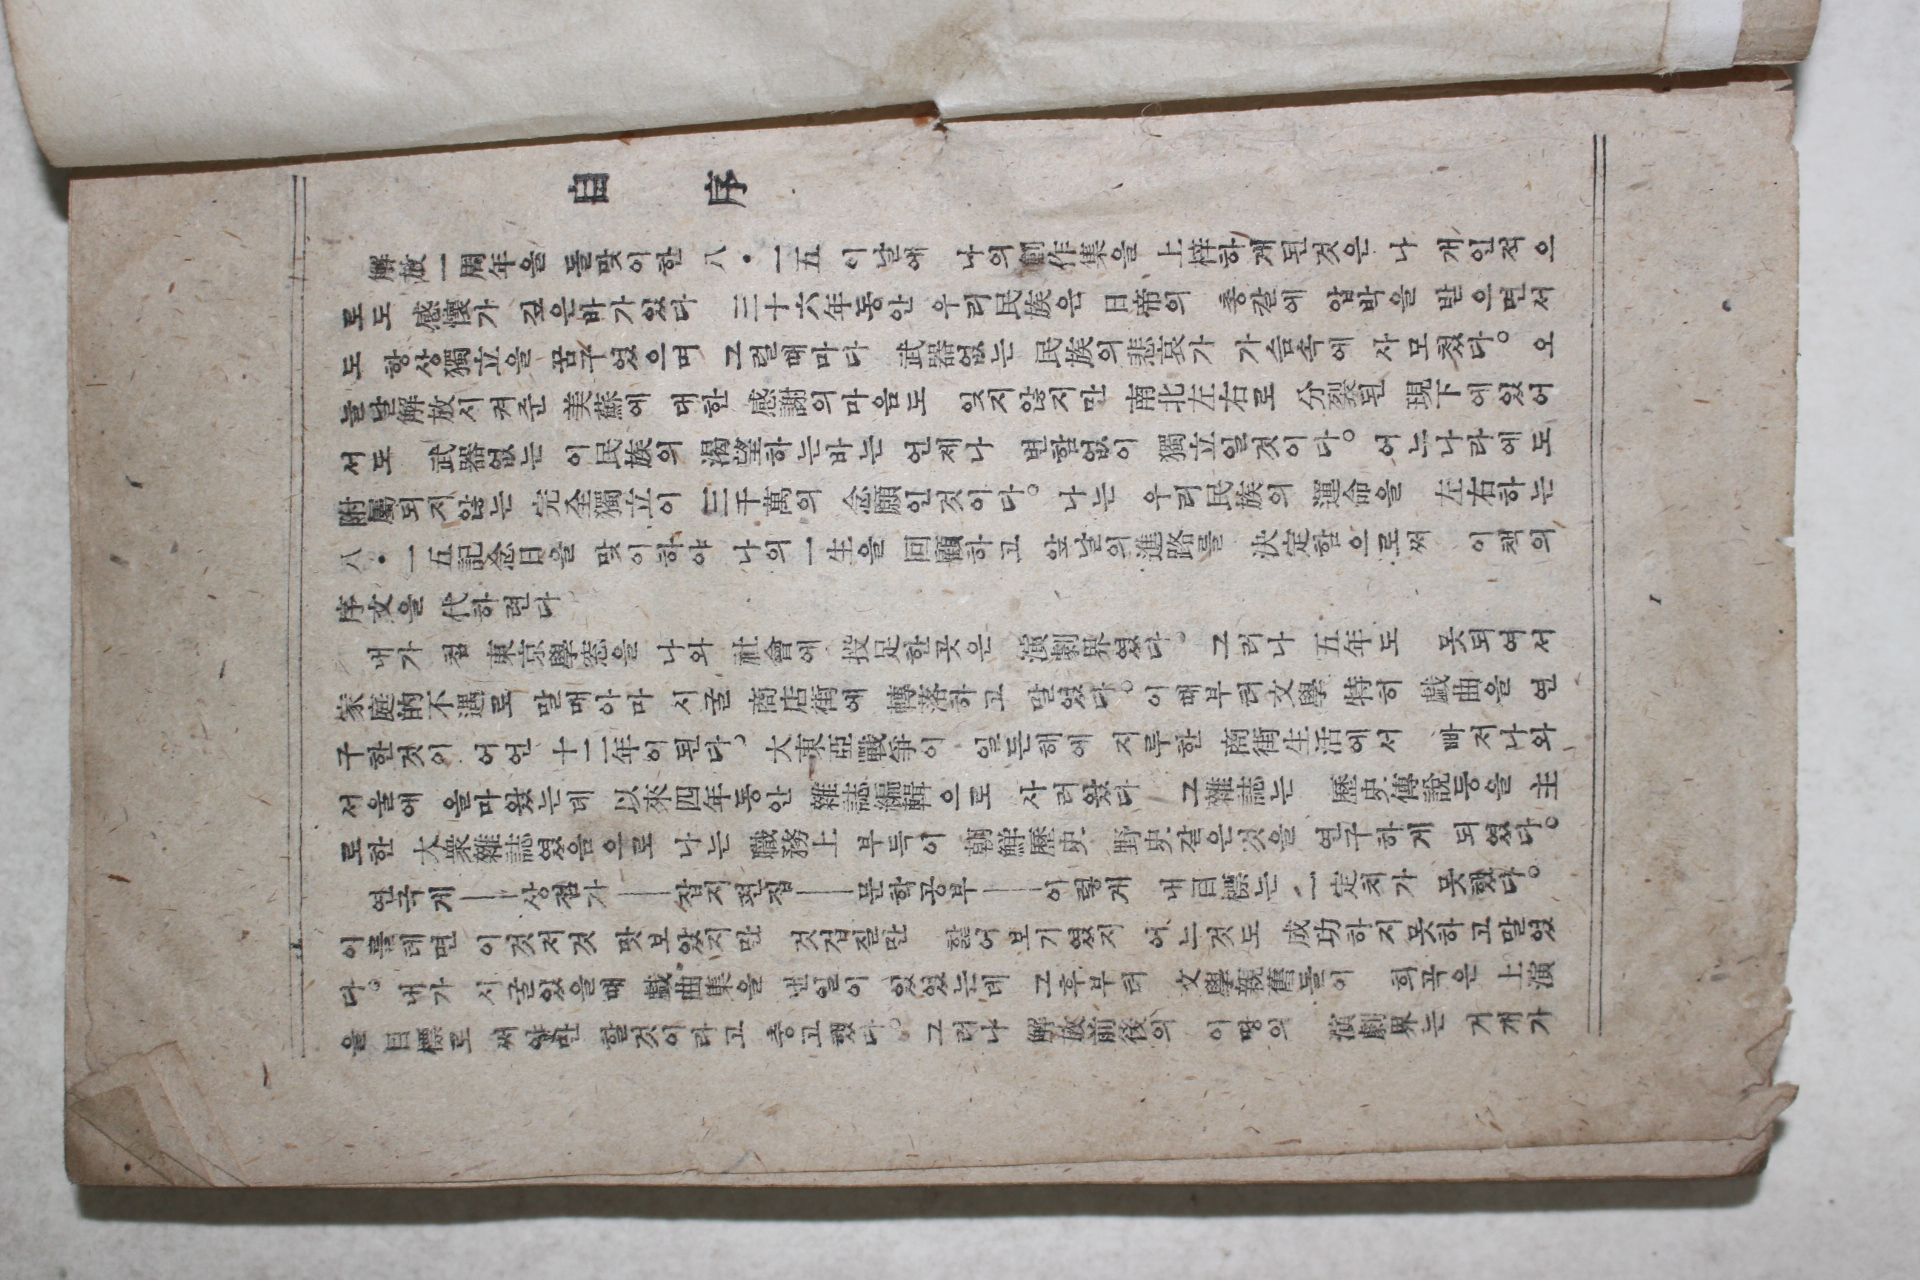 自序
解放一周年을 돌맞이한 八·一五 이날에 나의創作集을 上梓하게된것은 나 개인적으
로도 感懷가 깊은바가있다 三十六年동안 우리民族은 日帝의 총칼에 압박을 받으면서
도 항상獨立을 꿈구었으며 그럴때마다 武器없는 民族의悲哀가 가슴속에 사모첬다。오
늘날解放시켜준 美蘇에 대한 感謝의마음도 잊지않지만 南北左右로 分裂된 現下에있어
서도 武器없는 이民族의 渴望하는바는 언제나 변함없이 獨立일것이다。어느나라에도
附屬되지않는 完全獨立이 三千萬의 念願인것이다。나는 우리民族의 運命을 左右하는
八·一五記念日을 맞이하야 나의一生을 回顧하고 앞날의進路를 決定함으로써 이책의
序文을 代하련다
내가 첨 東京學窓을 나와 社會에 投足한곳은 演劇界였다。그러나 五年도 못되여서
家庭的不遇로 말매아마 시굴 商店街에 轉落하고 말었다。이때부터文學 特히 戱曲을 연
구한것이 어언 十二年이된다。大東亞戰爭이 일든해에 지루한 商街生活에서 빠저나와
서울에 올마왔는데 以來四年동안 雜誌編輯으로 사러왔다 그雜誌는 歷史傳說등을 主
로한 大衆雜誌였음으로 나는 職務上 부득이 朝鮮歷史 野史같은것을 연구하게 되였다。
연극게——상점가——잡지편집——문학공부——이렇게 내目標는 一定처가 못했다。
이를테면 이것저것 맛보았지만 것겁질만 핥어보기였지 어느것도 成功하지못하고말었
다。내가 시굴있을때 戱曲集을 낸일이 있었는데 그후부터 文學親舊들이 희곡은 上演
을 目標로 써야만 할것이라고 충고했다。그러나 解放前後의 이땅의 演劇界는 거개가
1